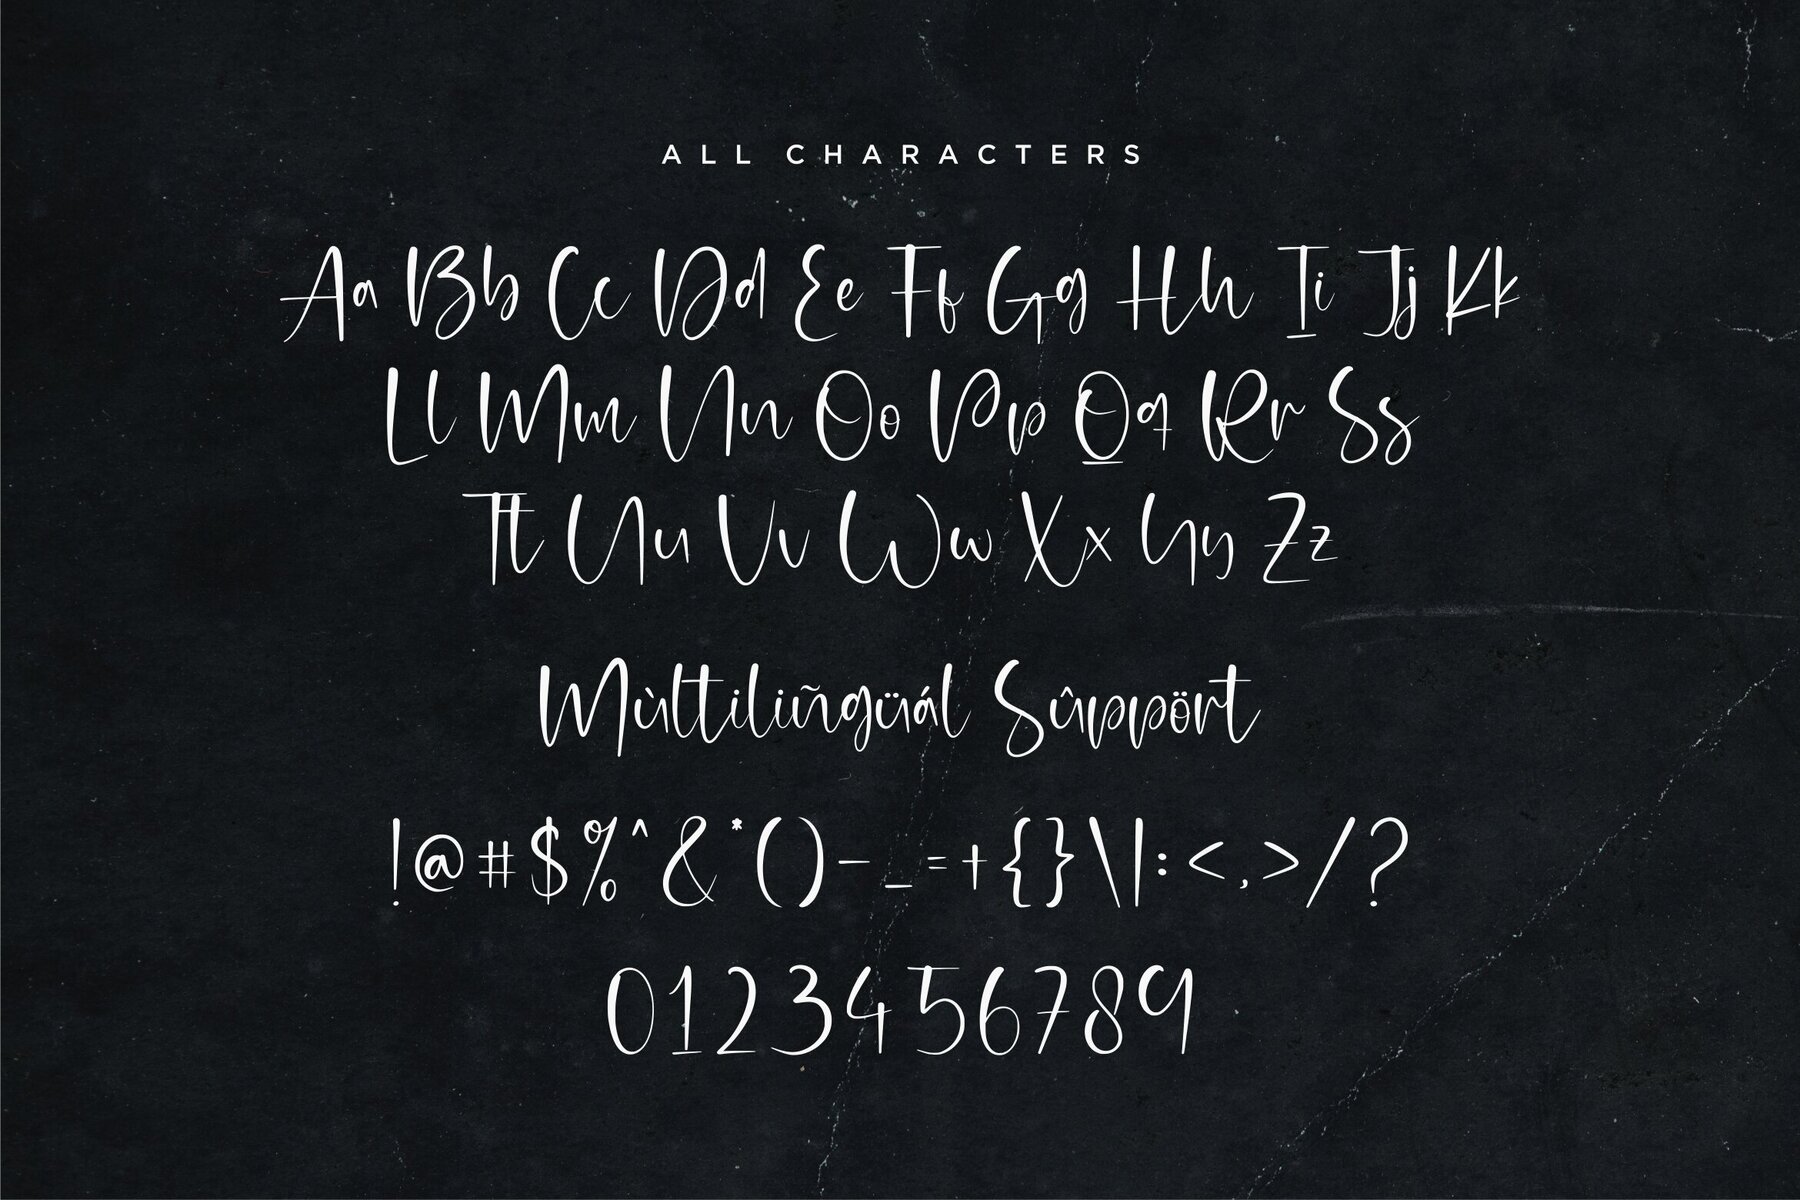 ALL CHARACTERS
Aa Bb Cc Dd Ee Ff Gg Hh Ii Jj Kk
Ll Mm Nn Oo Pp Qq Rr Ss
Tt Uu Vv Ww Xx Yy Zz
Mùltiliñgüál Sûppört
!@#$%^&*()-_=+{}\|:<,>/?
0123456789